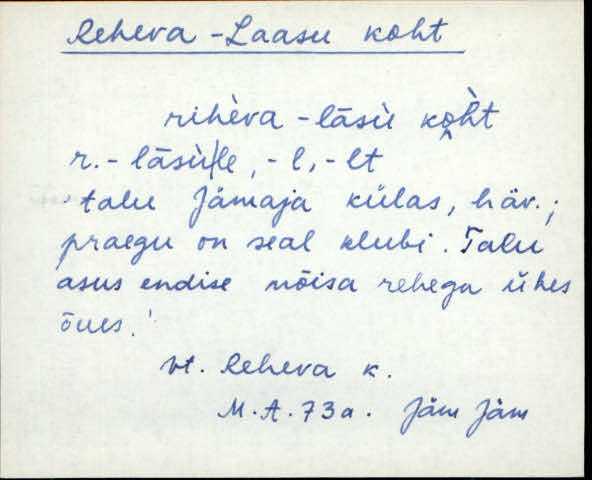 Reheva - Laasu koht
rihèva - lāsù kọ̀ht
r. - lāsù|le, - l, - lt
talu Jämaja külas, häv.;
praegu on seal klubi. Talu
asus endise mõisa rehega ühes
õues.
vt. Reheva k.
M.A. 73a. Jäm Jäm